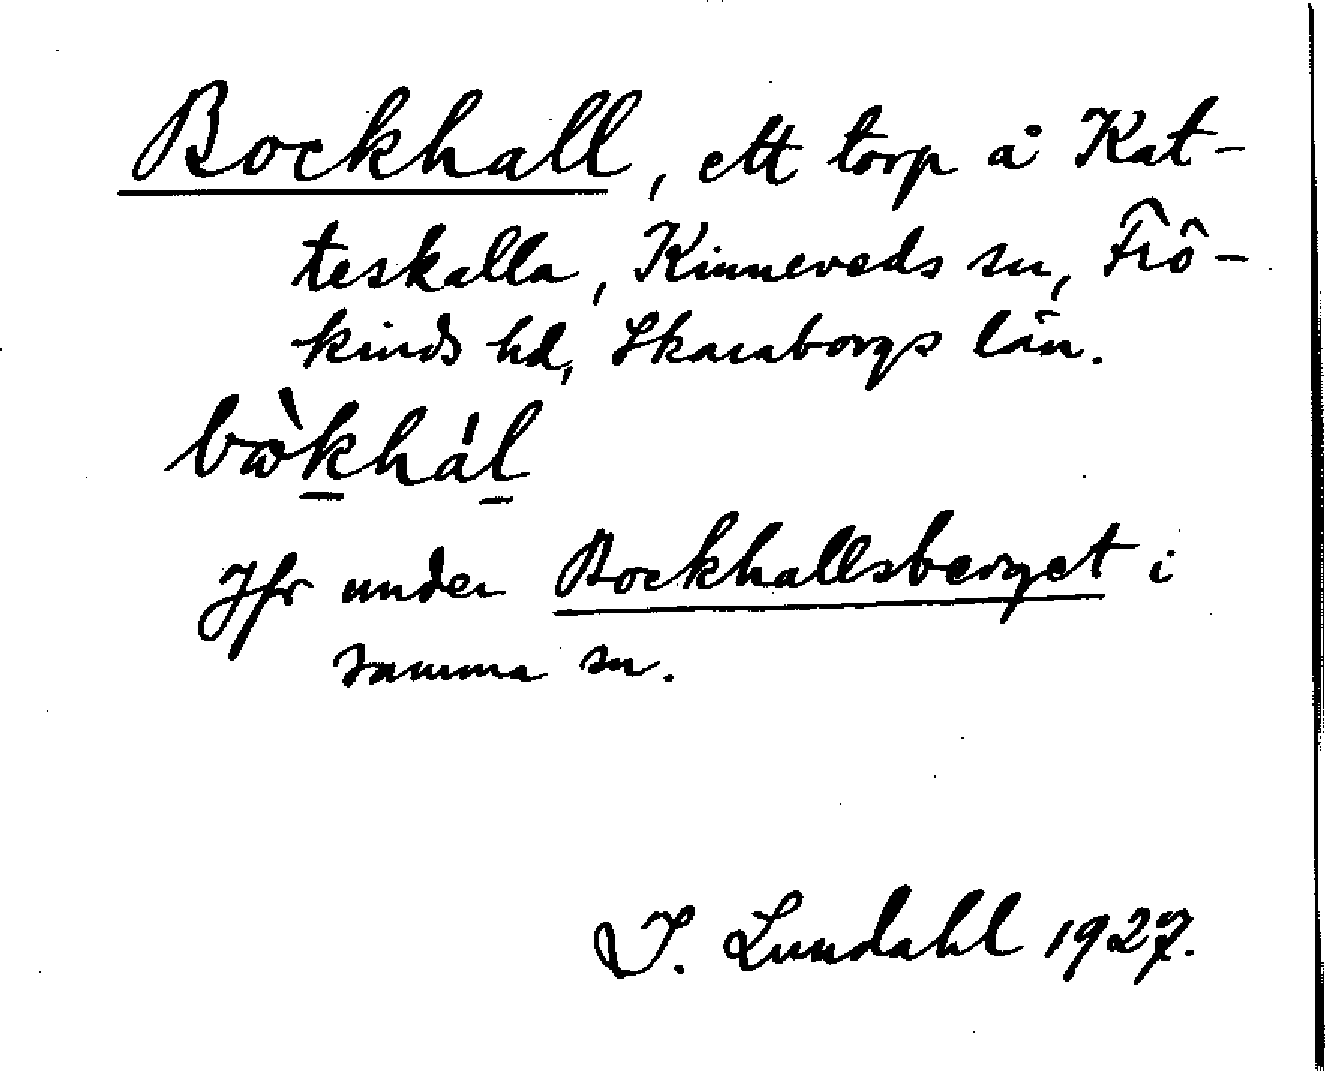 Bockhall, ett torp å Kat-
teskalla, Kinneveds sn, Frö-
kinds hd, Skaraborgs län.
bὼk̲hál̲
Jfr under Bockhallsberget i
samma sn.
I. Lundahl 1927.